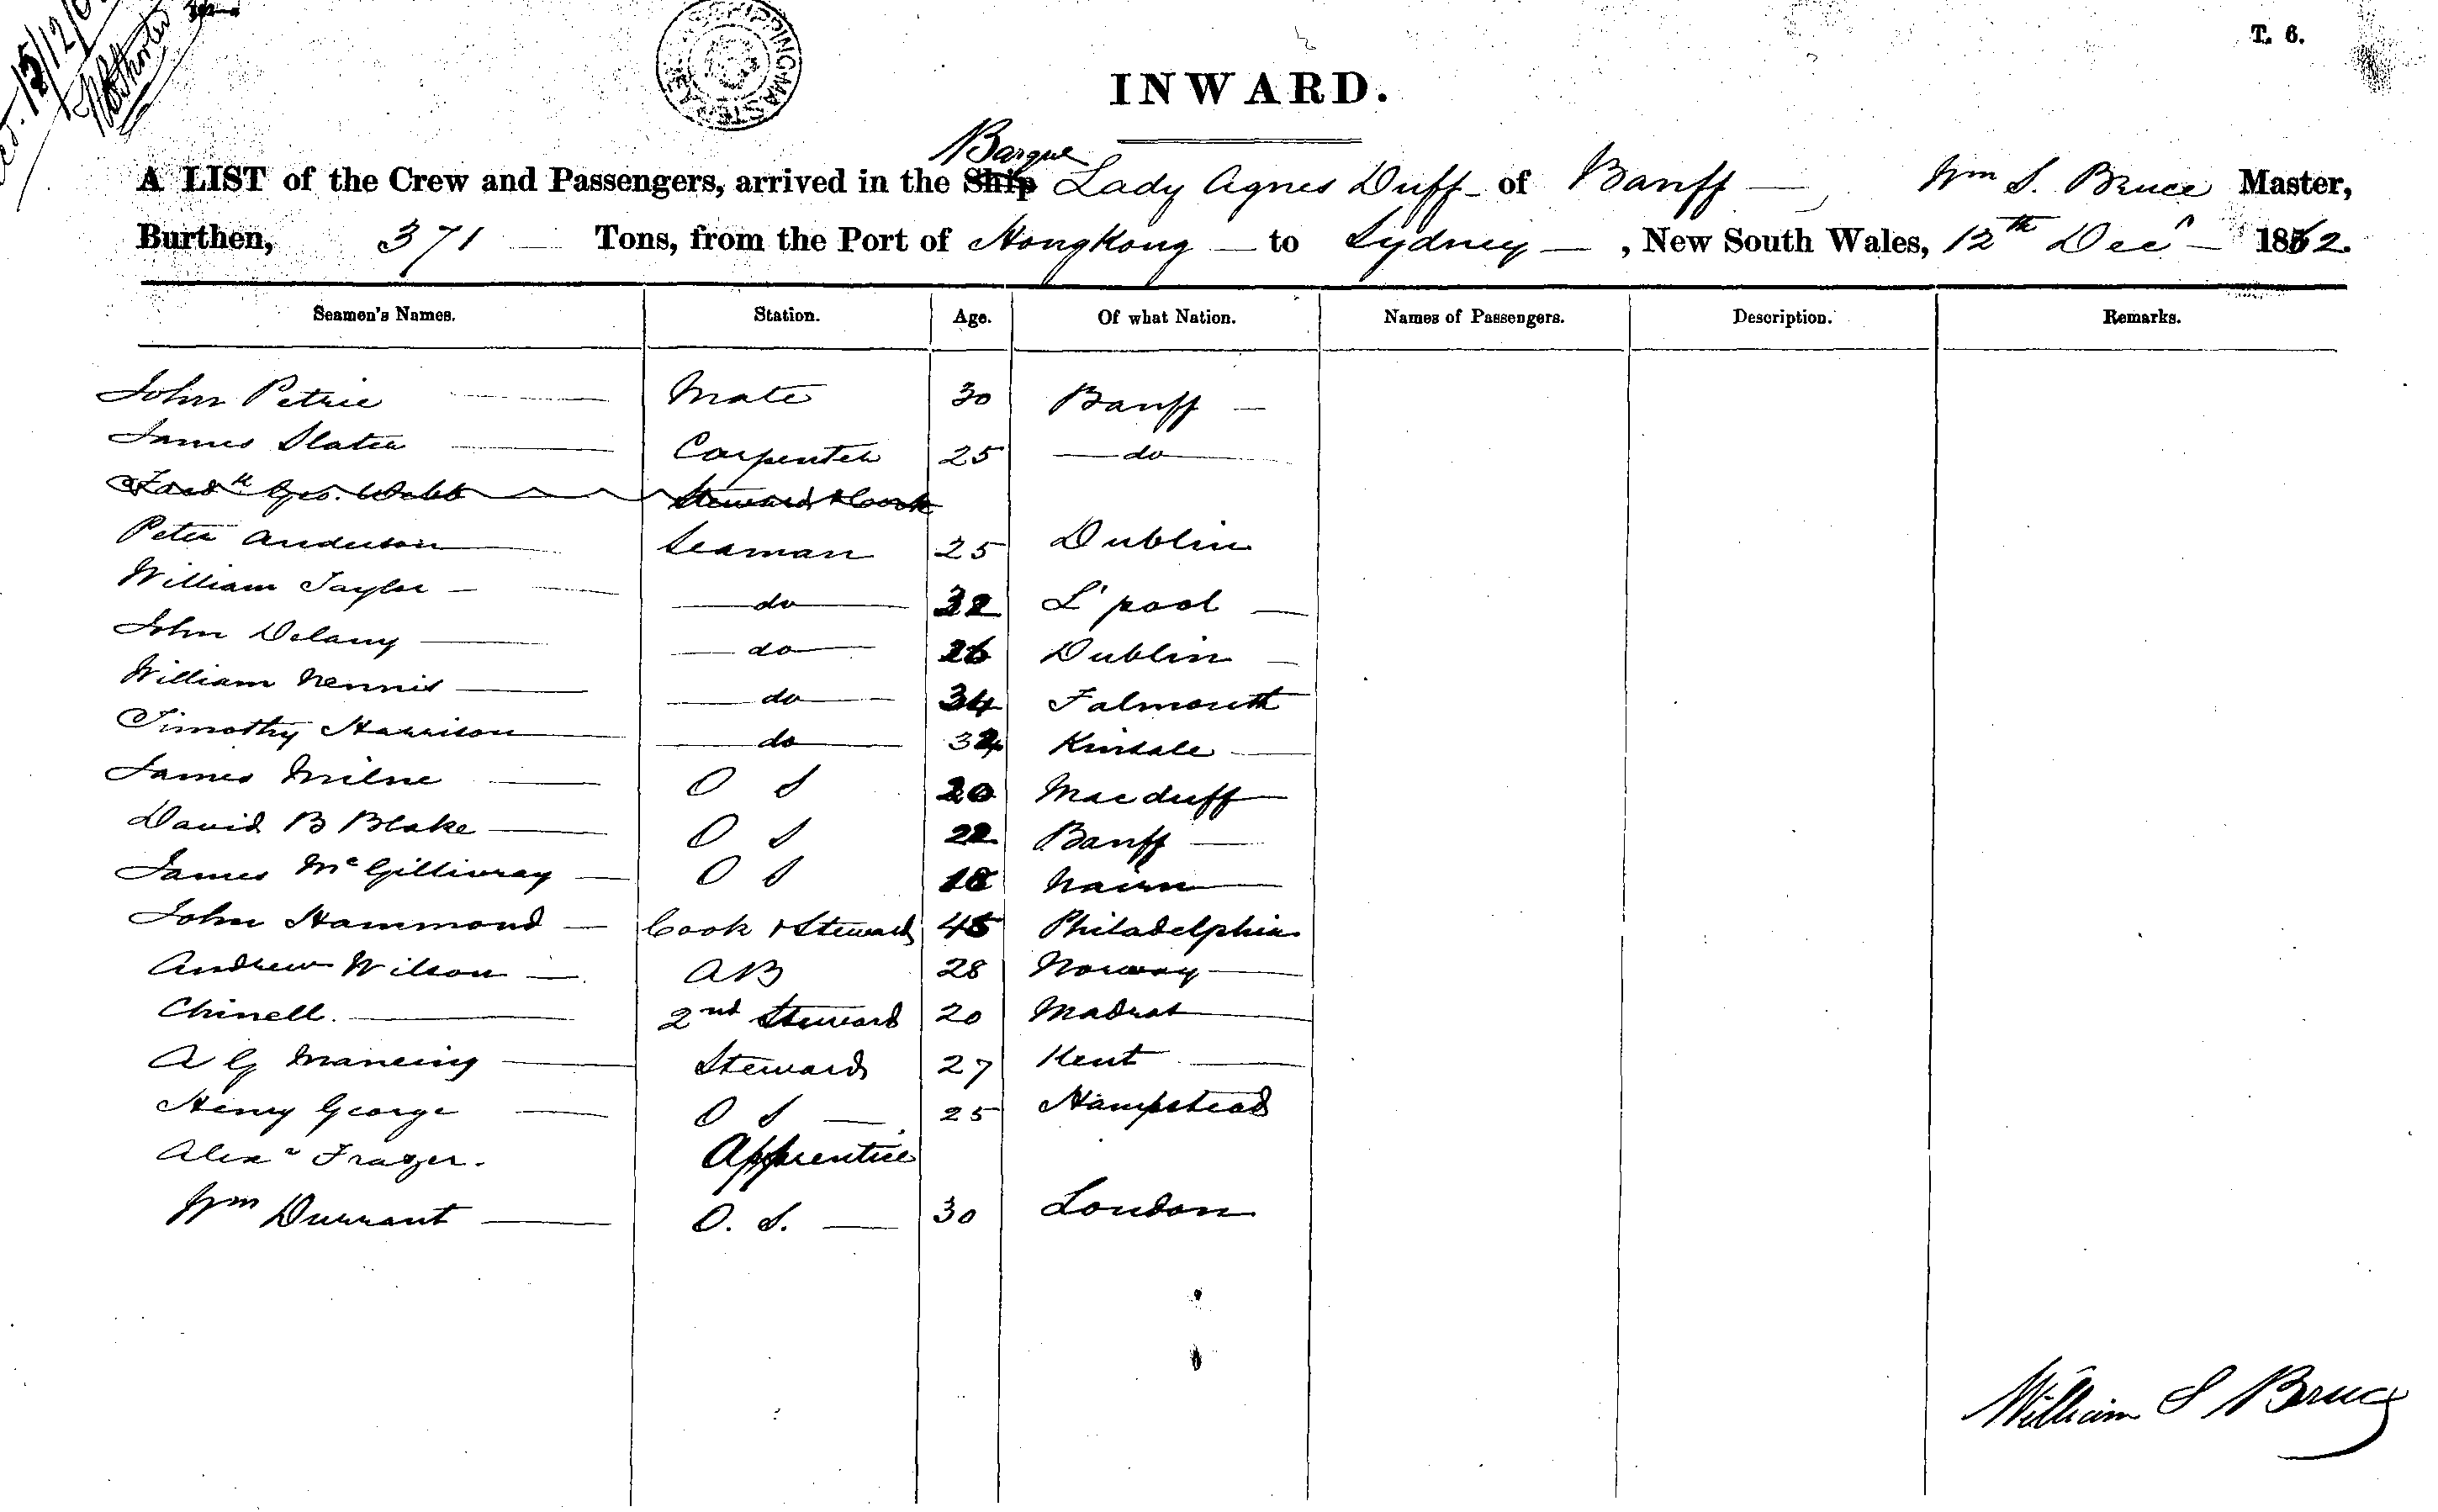 T. 6.
SHIPPING MASTER
15/12/6
INWARD.
Barque
A LIST of the Crew and Passengers, arrived in the Ship Lady Agnes Duff of Banff, Wm S. Bruce Master,
Burthen, 371 Tons, from the Port of HongKong to Sydney, New South Wales, 12th Decr 1862.
Seamen's Names. Station. Age. Of what Nation. Names of Passengers. Description. Remarks.
John Petrie Mate 30 Banff
James Slater Carpenter 25 do
Fredk Geo. Webb Steward & Cook
Peter Anderson Seaman 25 Dublin
William Taylor do 32 L'pool
John Delany do 26 Dublin
William Nennis do 34 Falmouth
Timothy Harrison do 34 Kinsale
James Milne O S 20 Macduff
David B Blake O S 22 Banff
James McGillivray O S 18 Nairn
John Hammond Cook & Steward 45 Philadelphia
Andrew Wilson AB 28 Norway
Chinell. 2nd Steward 20 Madras
A G Manning Steward 27 Kent
Henry George O S 25 Hampstead
Alexr Frazer. Apprentice
Wm Durrant O. S. 30 London
William S Bruce